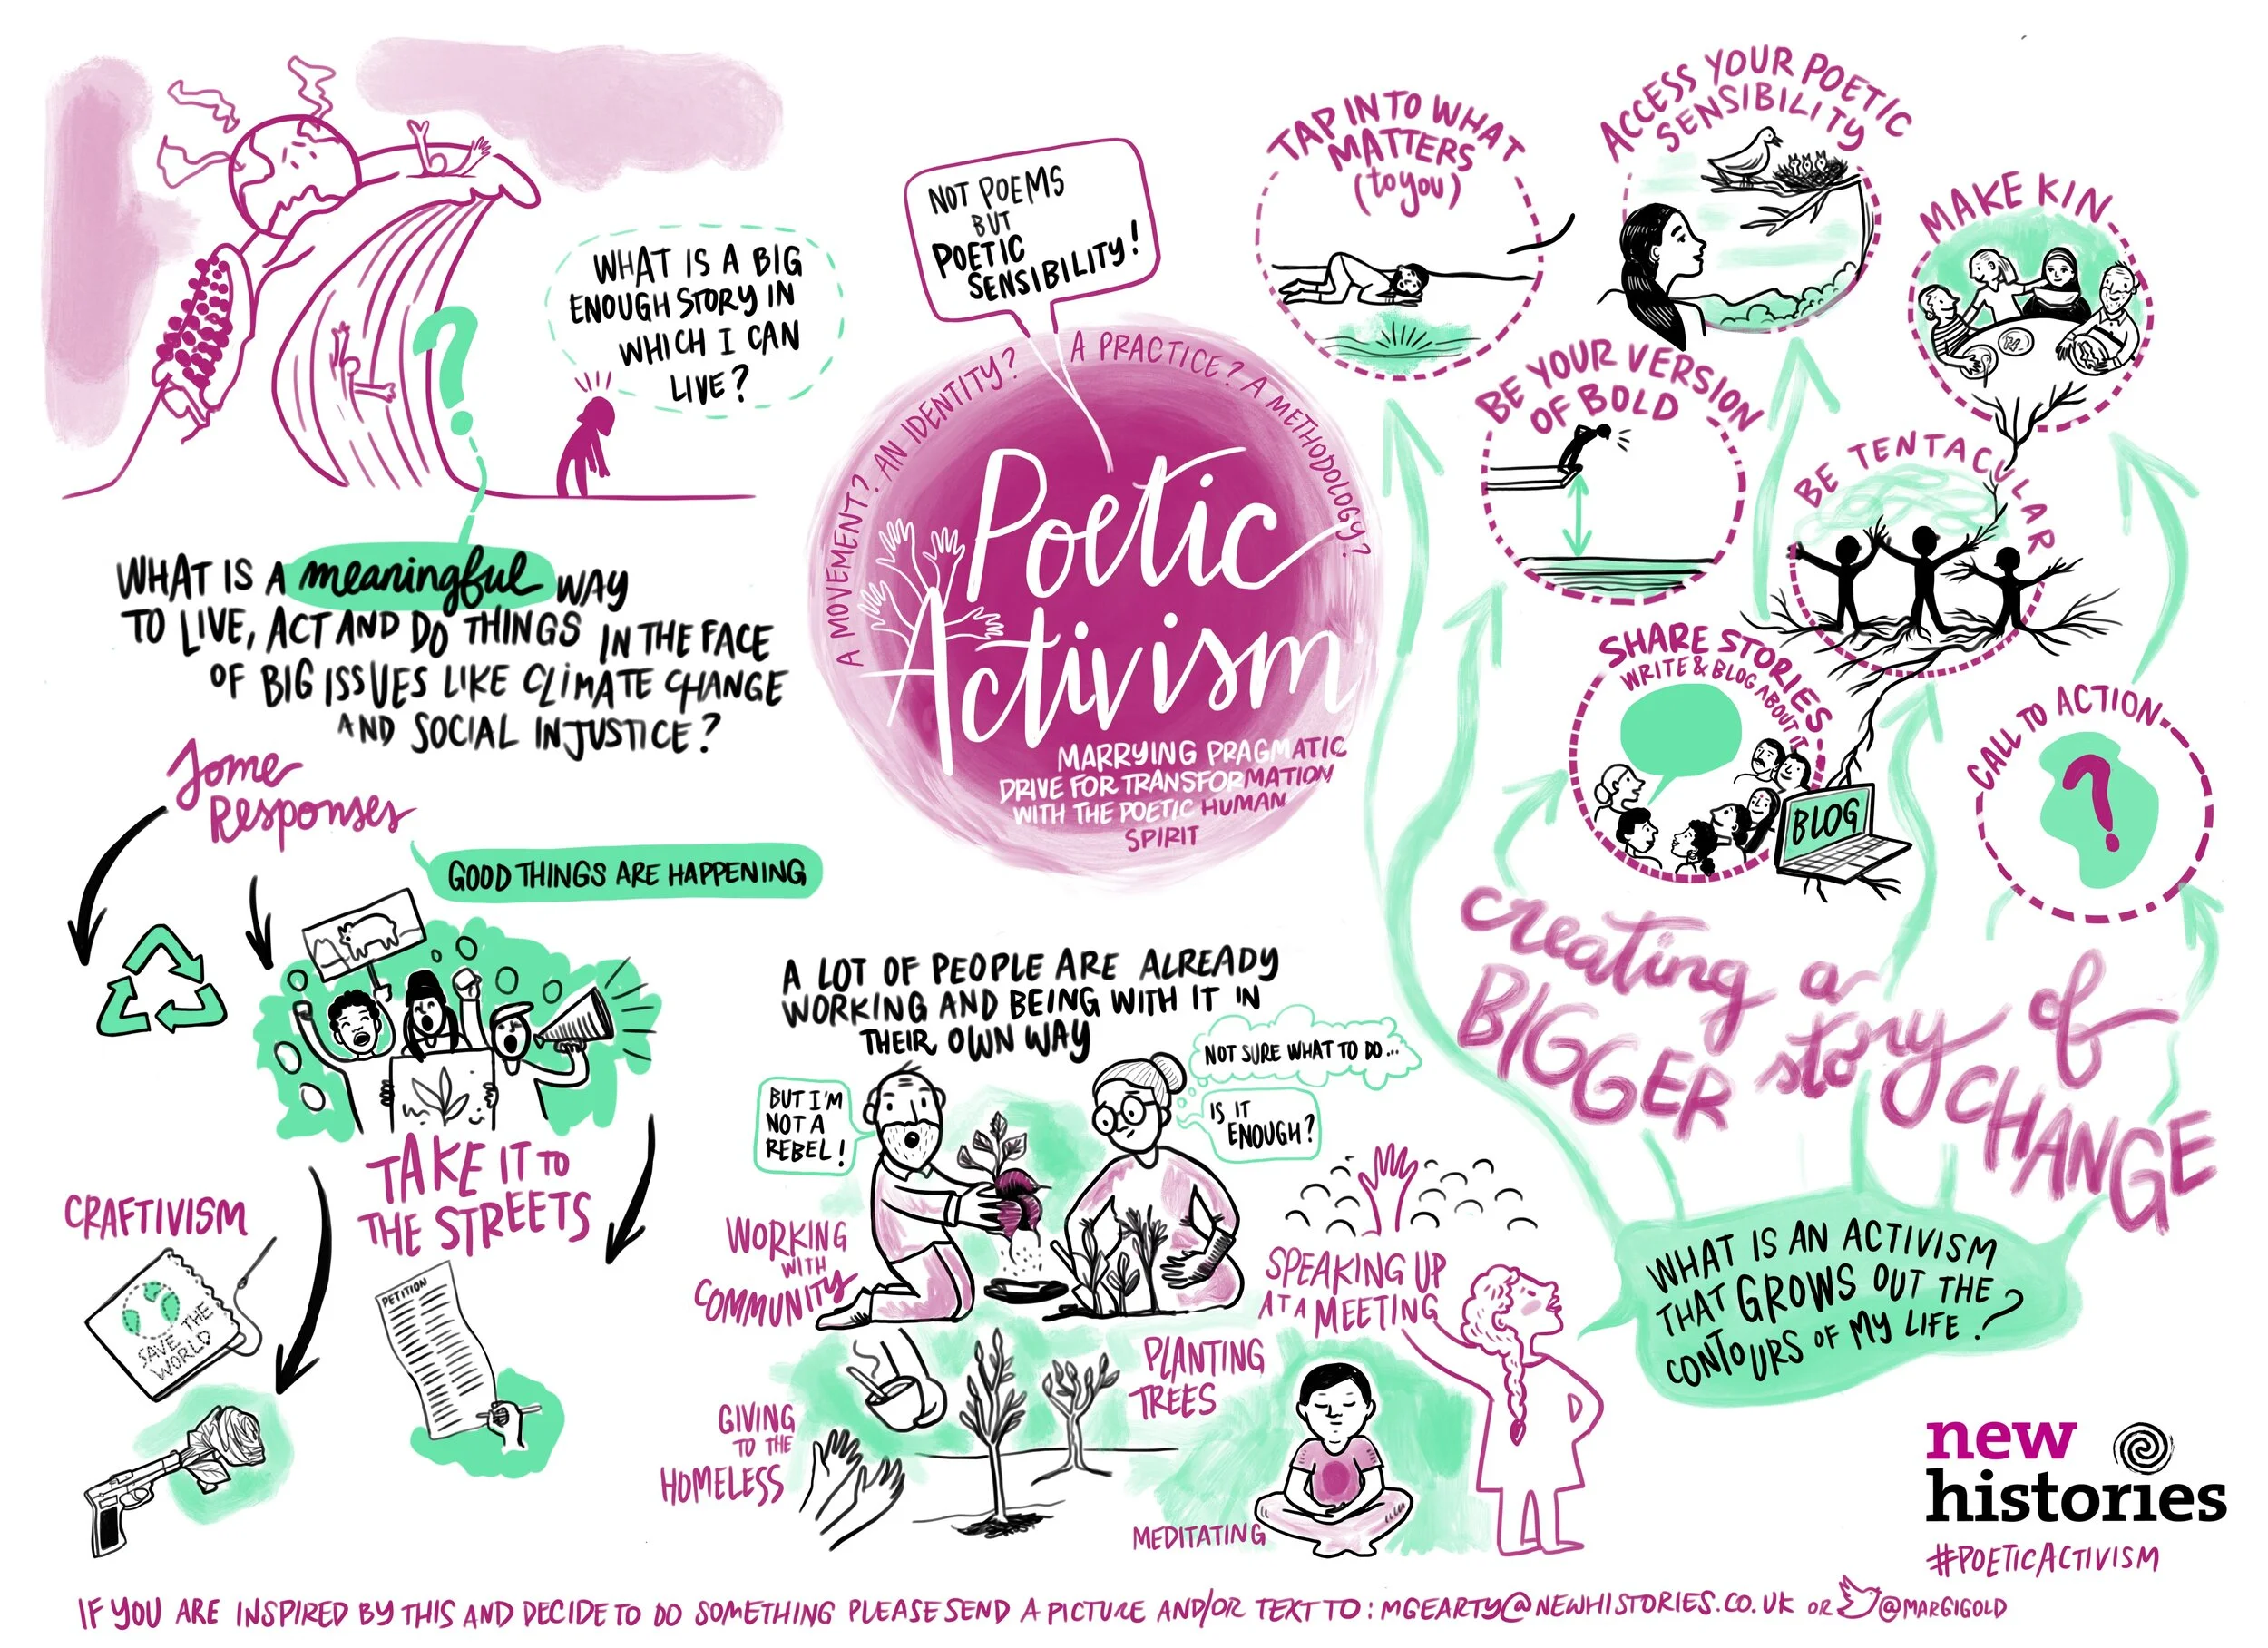 WHAT IS A BIG
ENOUGH STORY IN
WHICH I CAN
LIVE?
WHAT IS A meaningful WAY
TO LIVE, ACT AND DO THINGS IN THE FACE
OF BIG ISSUES LIKE CLIMATE CHANGE
AND SOCIAL INJUSTICE?
Some
Responses
GOOD THINGS ARE HAPPENING
TAKE IT TO
THE STREETS
CRAFTIVISM
SAVE THE
WORLD
PETITION
NOT POEMS
BUT
POETIC
SENSIBILITY!
A MOVEMENT? AN IDENTITY? A PRACTICE? A METHODOLOGY?
Poetic
Activism
MARRYING PRAGMATIC
DRIVE FOR TRANSFORMATION
WITH THE POETIC HUMAN
SPIRIT
A LOT OF PEOPLE ARE ALREADY
WORKING AND BEING WITH IT IN
THEIR OWN WAY
BUT I'M
NOT A
REBEL!
NOT SURE WHAT TO DO...
IS IT
ENOUGH?
WORKING
WITH
COMMUNITY
SPEAKING UP
AT A MEETING
PLANTING
TREES
GIVING
TO THE
HOMELESS
MEDITATING
TAP INTO WHAT
MATTERS
(to you)
ACCESS YOUR POETIC
SENSIBILITY
MAKE KIN
BE YOUR VERSION
OF BOLD
BE TENTACULAR
SHARE STORIES
WRITE & BLOG ABOUT IT
BLOG
CALL TO ACTION
?
creating a
BIGGER story of
CHANGE
WHAT IS AN ACTIVISM
THAT GROWS OUT THE
CONTOURS OF MY LIFE?
new
histories
#POETICACTIVISM
IF YOU ARE INSPIRED BY THIS AND DECIDE TO DO SOMETHING PLEASE SEND A PICTURE AND/OR TEXT TO: MGEARTY@NEWHISTORIES.CO.UK OR @MARGIGOLD